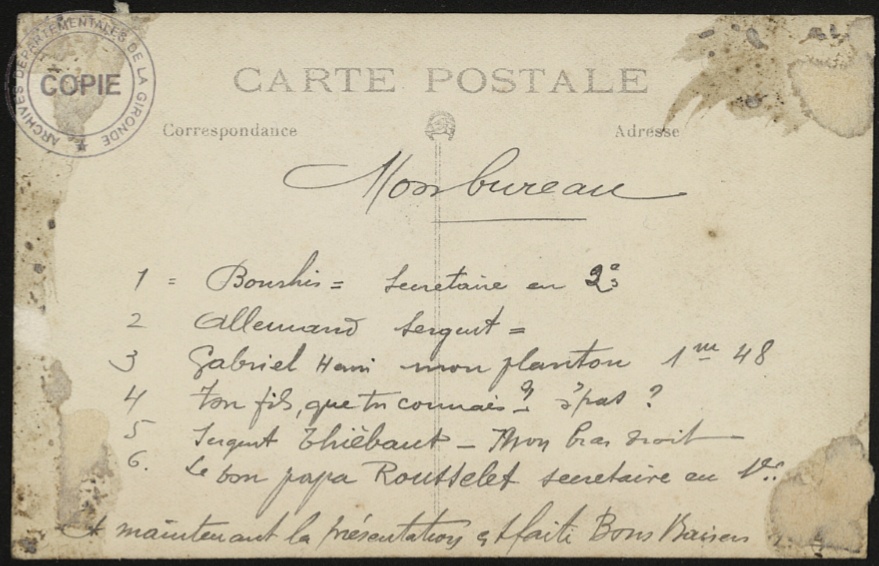 ARCHIVES DÉPARTEMENTALES DE LA GIRONDE
COPIE
CARTE POSTALE
Correspondance
Adresse
Mon bureau
1 = = Secretaire en 2e
2 Allemand Sergent =
3 Gabriel Henri mon planton 1m 48
4 ton fils, que tu connais ? s'pas ?
5 Sergent Thiébaut — Mon bras droit —
6. Le bon papa Rousselet secretaire en 1er
et maintenant la présentation est faite Bons Baisers